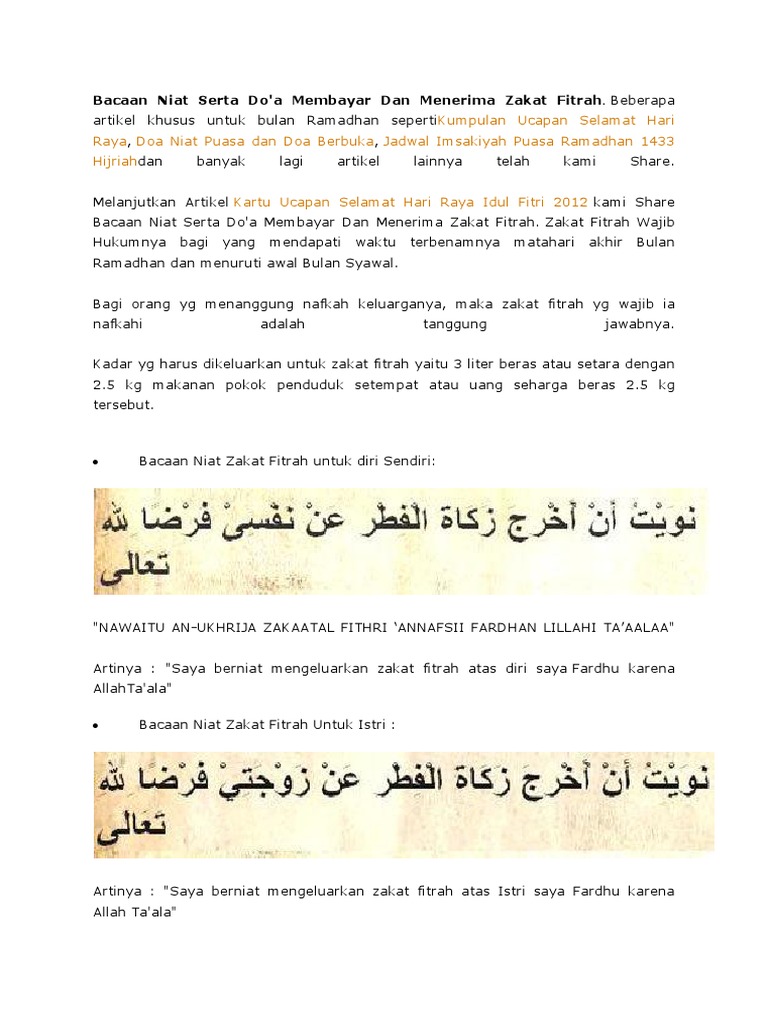 Bacaan Niat Serta Do'a Membayar Dan Menerima Zakat Fitrah. Beberapa
artikel khusus untuk bulan Ramadhan sepertiKumpulan Ucapan Selamat Hari
Raya, Doa Niat Puasa dan Doa Berbuka, Jadwal Imsakiyah Puasa Ramadhan 1433
Hijriahdan banyak lagi artikel lainnya telah kami Share.
Melanjutkan Artikel Kartu Ucapan Selamat Hari Raya Idul Fitri 2012 kami Share
Bacaan Niat Serta Do'a Membayar Dan Menerima Zakat Fitrah. Zakat Fitrah Wajib
Hukumnya bagi yang mendapati waktu terbenamnya matahari akhir Bulan
Ramadhan dan menuruti awal Bulan Syawal.
Bagi orang yg menanggung nafkah keluarganya, maka zakat fitrah yg wajib ia
nafkahi adalah tanggung jawabnya.
Kadar yg harus dikeluarkan untuk zakat fitrah yaitu 3 liter beras atau setara dengan
2.5 kg makanan pokok penduduk setempat atau uang seharga beras 2.5 kg
tersebut.
• Bacaan Niat Zakat Fitrah untuk diri Sendiri:
نَوَيْتُ أَنْ أُخْرِجَ زَكَاةَ الْفِطْرِ عَنْ نَفْسِيْ فَرْضًا لِلّٰهِ
تَعَالَى
"NAWAITU AN-UKHRIJA ZAKAATAL FITHRI ‘ANNAFSII FARDHAN LILLAHI TA’AALAA"
Artinya : "Saya berniat mengeluarkan zakat fitrah atas diri saya Fardhu karena
AllahTa'ala"
• Bacaan Niat Zakat Fitrah Untuk Istri :
نَوَيْتُ أَنْ أُخْرِجَ زَكَاةَ الْفِطْرِ عَنْ زَوْجَتِيْ فَرْضًا لِلّٰهِ
تَعَالَى
Artinya : "Saya berniat mengeluarkan zakat fitrah atas Istri saya Fardhu karena
Allah Ta'ala"